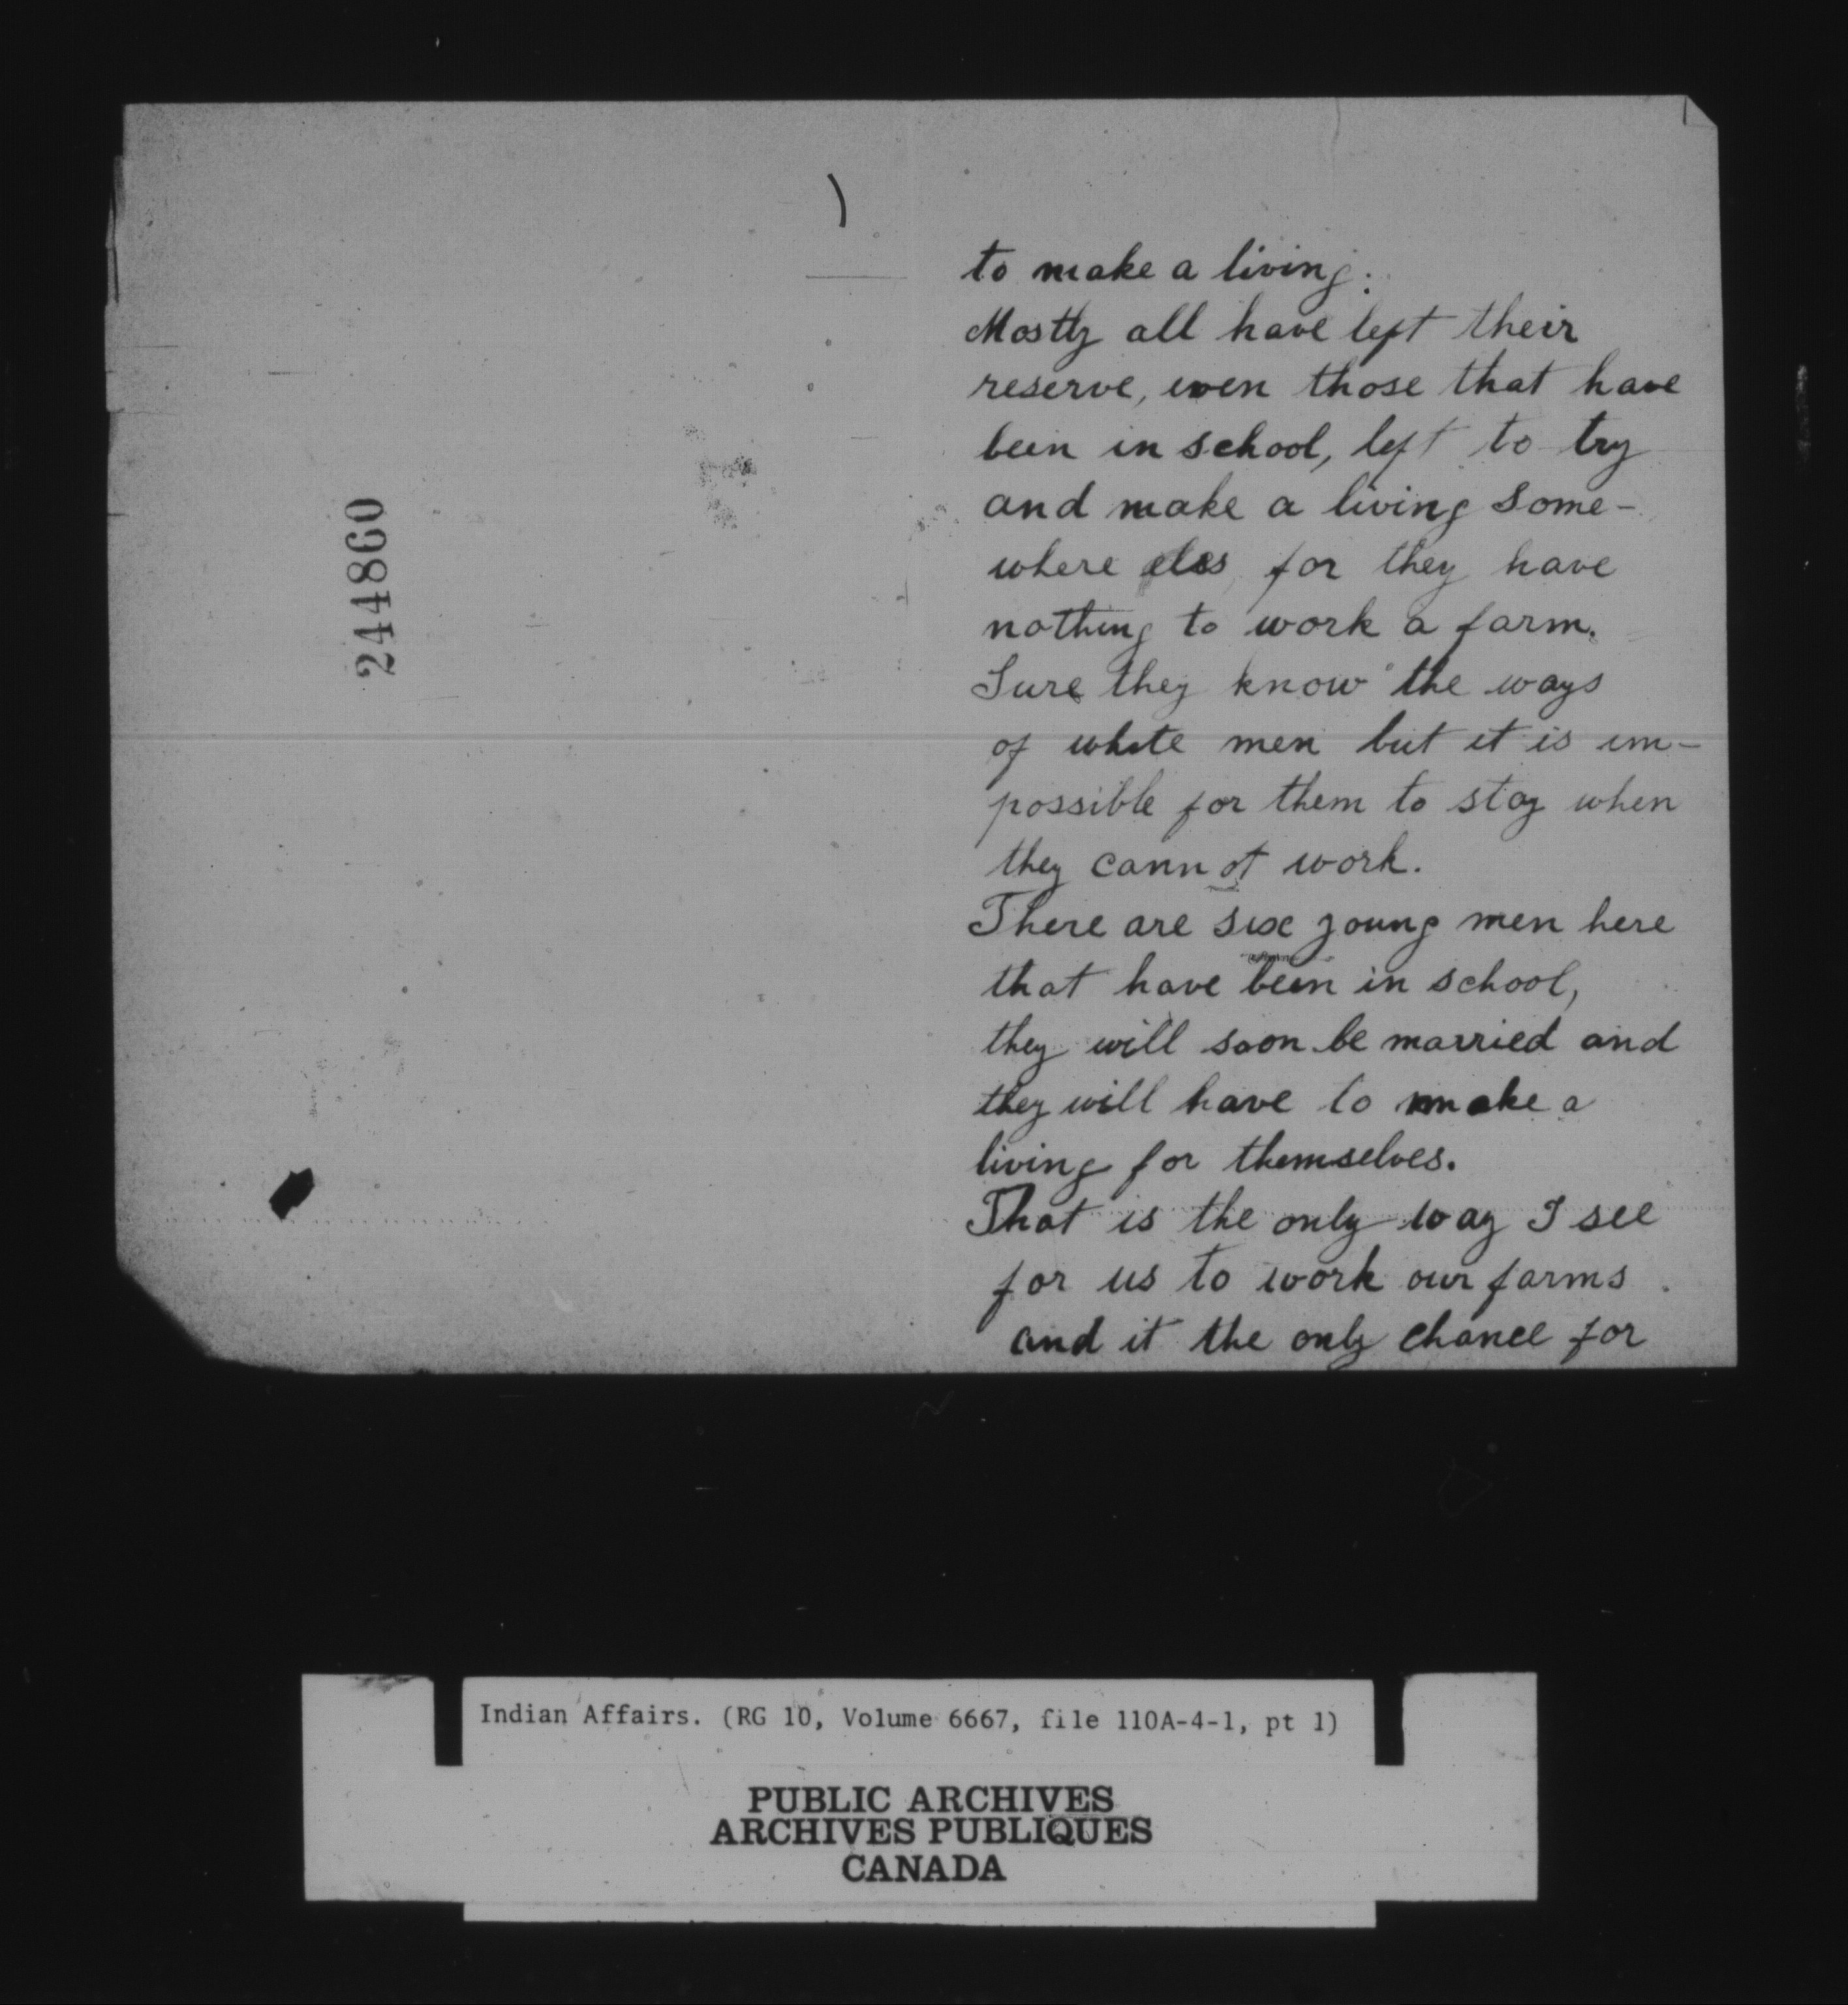 244860
to make a living.
Mostly all have left their
reserve, even those that have
been in school, left to try
and make a living some-
where els for they have
nothing to work a farm.
Sure they know the ways
of white men but it is im-
possible for them to stay when
they cannot work.
There are six young men here
that have been in school,
they will soon be married and
they will have to make a
living for themselves.
That is the only way I see
for us to work our farms
and it the only chance for
Indian Affairs. (RG 10, Volume 6667, file 110A-4-1, pt 1)
PUBLIC ARCHIVES
ARCHIVES PUBLIQUES
CANADA